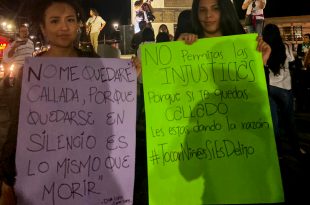 NO ME QUEDARE
CALLADA, PORQUE
QUEDARSE EN
SILENCIO ES
LO MISMO QUE
MORIR"
NO Permitas las
INJUSTICIAS
Porque si te quedas
CALLADO
les estas dando la razón
#TocarNiñasSiEsDelito